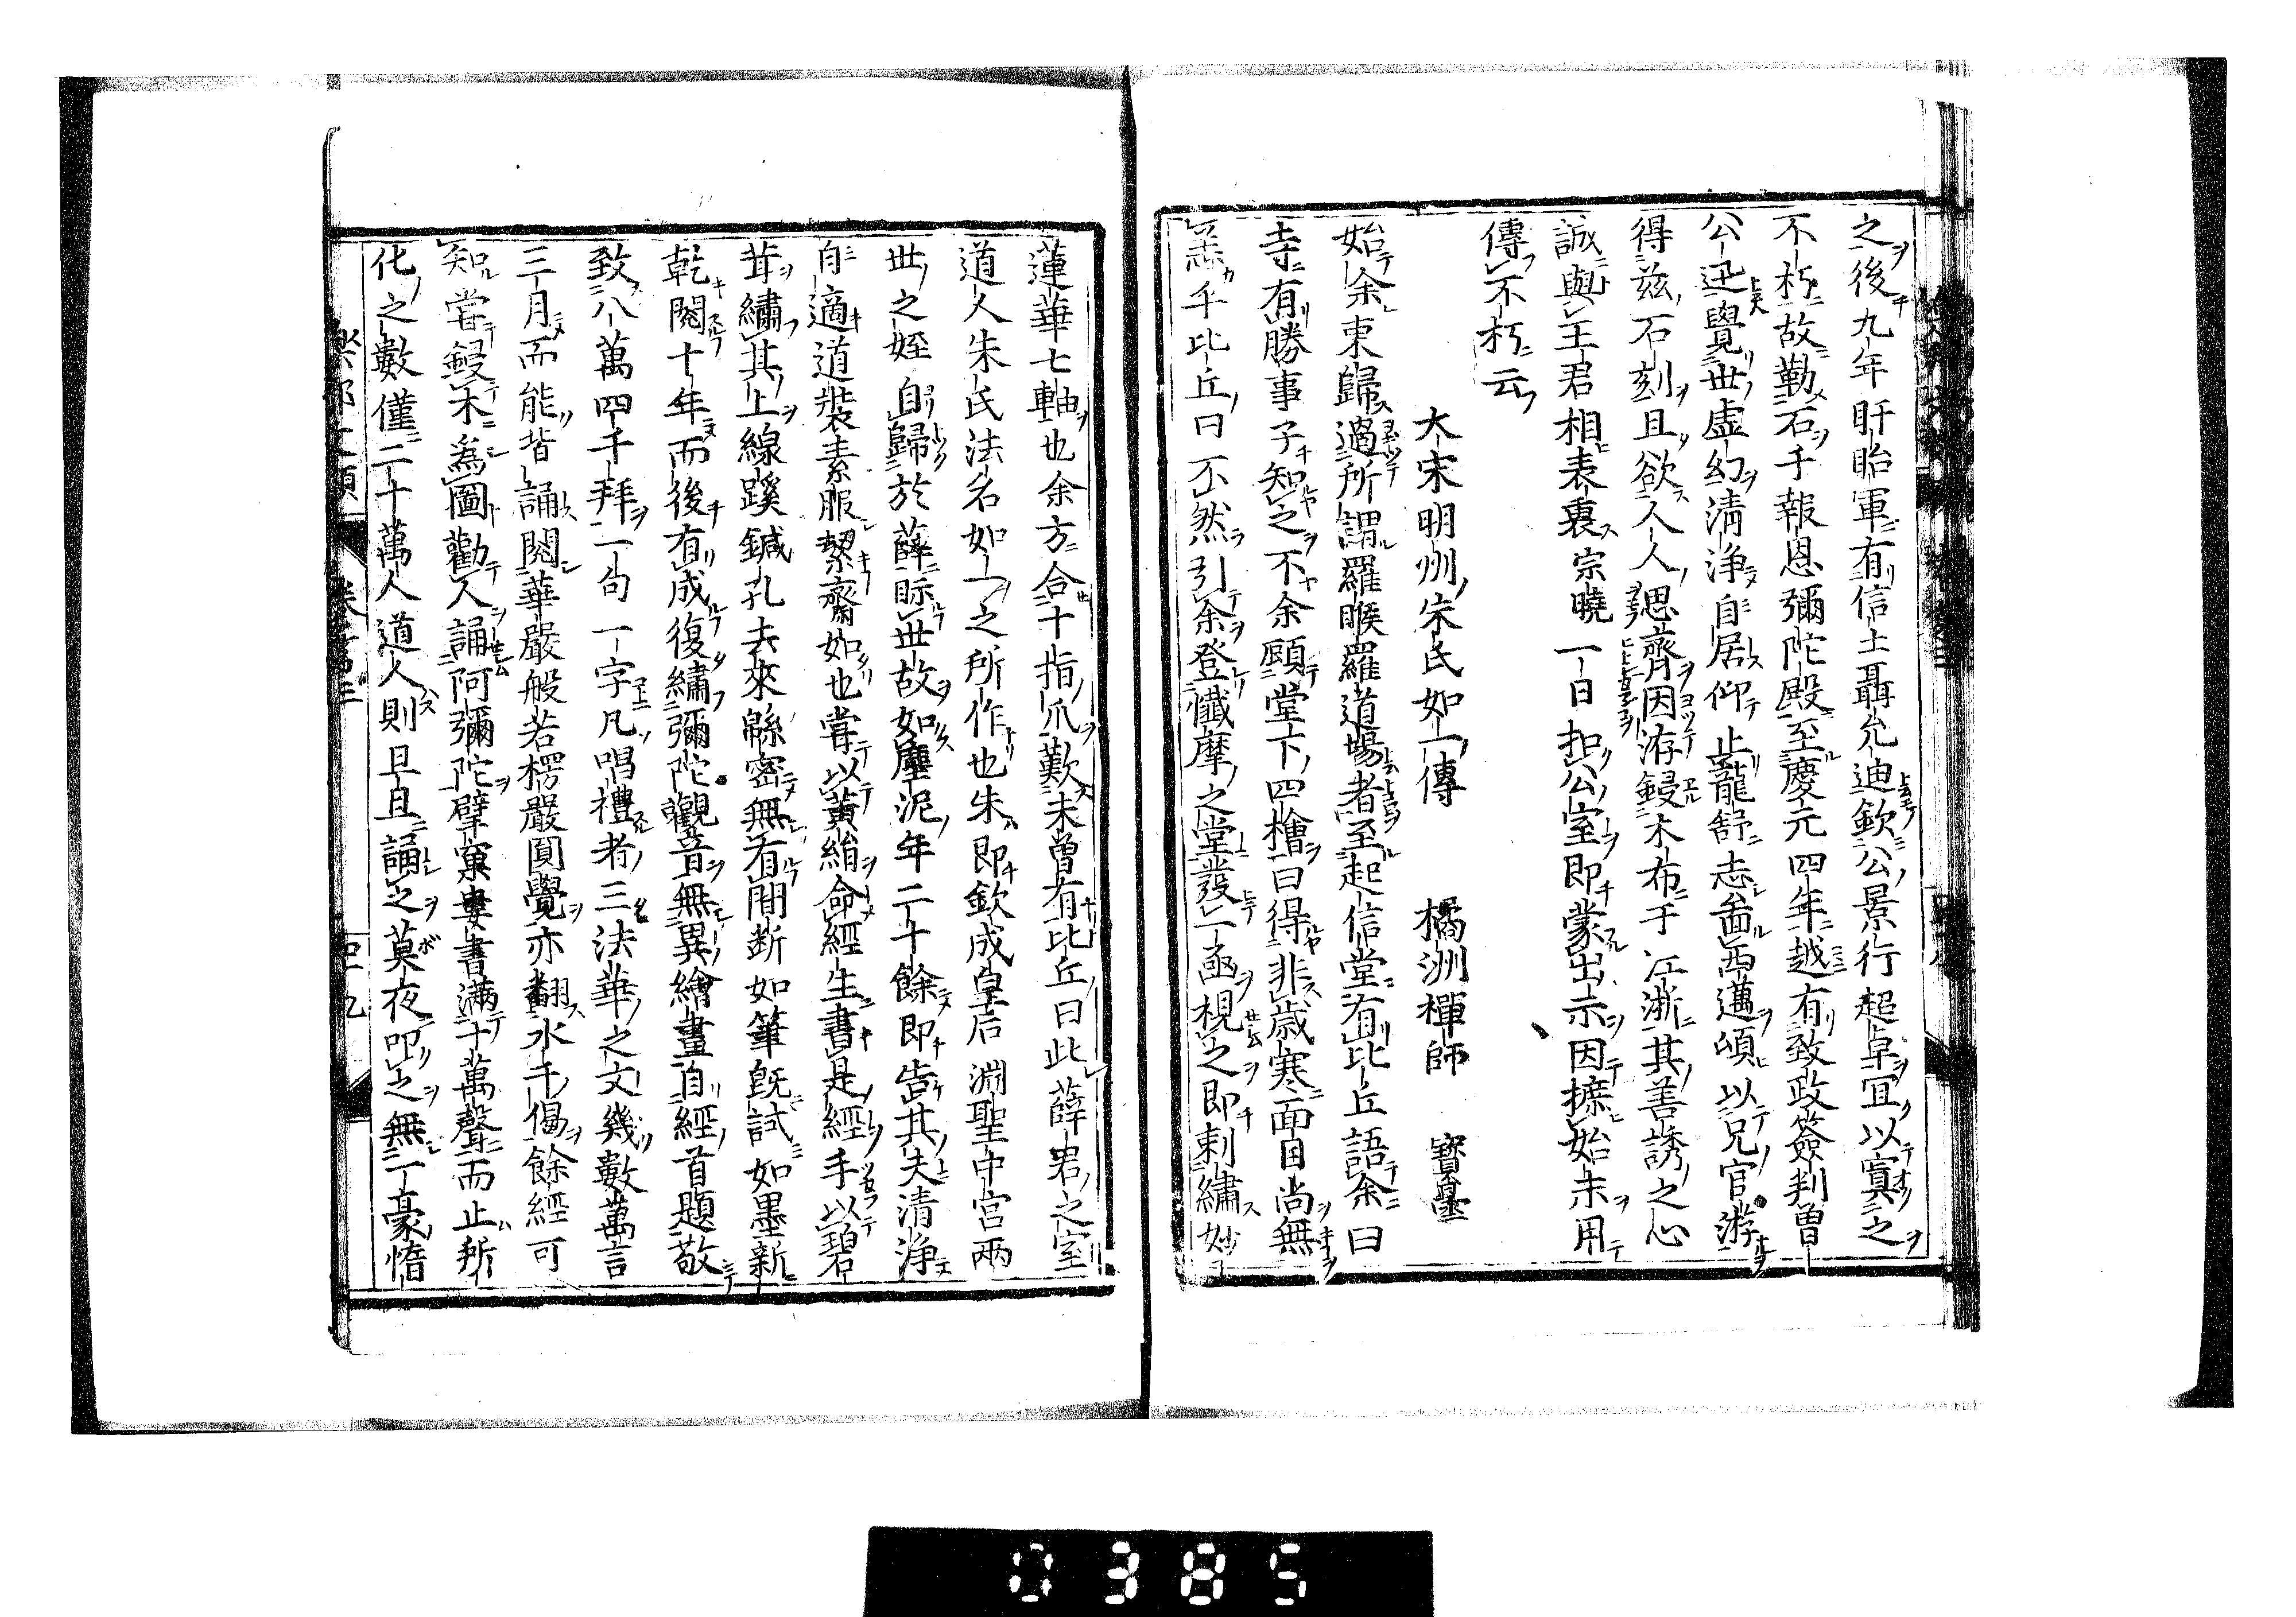 之後九年盱眙軍有信士聶允迪欽公景行超卓冝以寘之
不朽故勒石于報恩彌陀殿至慶元四年越有致政簽判曽
公迅覺世虛幻清浄自居仰止龍舒志啚西邁頌以兄官游
得茲石刻且欲人人思齊因洊鋟木布于江浙其善誘之心
誠與王君相表裏宗曉一日扣公室即蒙出示因摭始末用
傳不朽云
大宋明州朱氏如一傳　橘洲禪師　寶曇
始余東歸過所謂羅睺羅道場者至起信堂有比丘語余曰
寺有勝事子知之不余顧堂下四檜曰得非歲寒面目尚無
恙乎比丘曰不然引余登懺摩之堂發一函視之即刺繡妙
蓮華七軸也余方合十指爪歎未曽有比丘曰此薛君之室
道人朱氏法名如一之所作也朱即欽成皇后淵聖中宮兩
世之姪自歸於薛眎世故如塵泥年二十餘即告其夫清浄
自適道裝素服絜齋如也嘗以黃絹命經生書是經手以碧
茸繡其上線蹊鍼孔去來緜密無有間断如筆旣試如墨新
乾閱十年而後有成復繡彌陀觀音無異繪畫自經首題敬
致八萬四千拜一句一字凡唱禮者三法華之文幾數萬言
三月而能背誦閱華嚴般若楞嚴圓覺亦翻水千偈餘經可
知嘗鋟木爲圖勸人誦阿彌陀擘窠婁書滿十萬聲而止所
化之數僅二十萬人道人則旦旦誦之莫夜叩之無一豪惰
樂邦文類　卷第三　四十九
0385